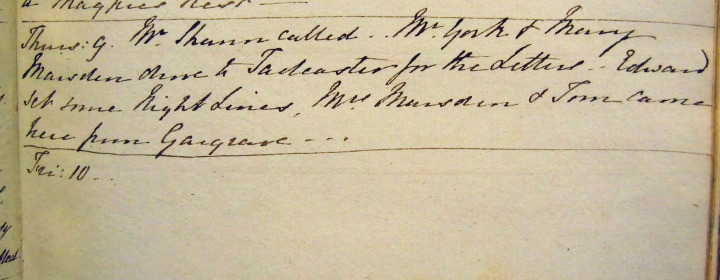 a Magpies Nest —
Thurs: 9. Mr. Shann called .. Mr. York & Mary
Marsden drove to Tadcaster for the Letters .. Edward
set some Night Lines, Mrs Marsden & Tom came
here from Gargrave - - -
Fri: 10 ..